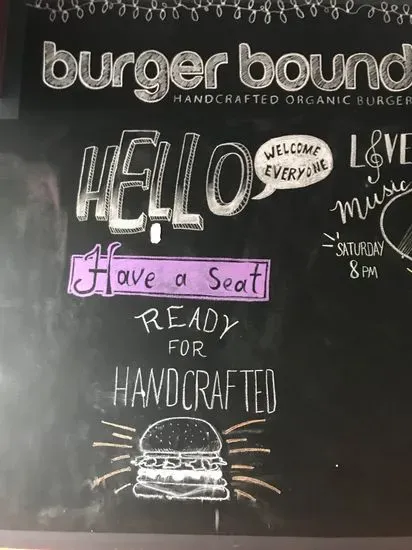 burger bound
HANDCRAFTED ORGANIC BURGER
HELLO
WELCOME
EVERYONE
Have a Seat
READY
FOR
HANDCRAFTED
LIVE
Music
SATURDAY
8 PM